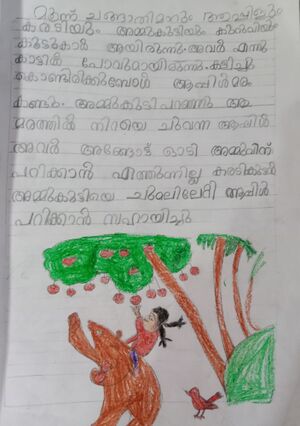 മൂന്ന് ചങ്ങാതിമാരും ആപ്പിളും
കരടിയും അമ്മുകുട്ടിയും കുരുവിയും
കൂട്ടുകാർ ആയിരുന്നു അവർ എന്നും
കാട്ടിൽ പോവുമായിരുന്നു. കളിച്ചു
കൊണ്ടിരിക്കുമ്പോൾ ആപ്പിൾ മരം
കണ്ടു. അമ്മുകുട്ടി പറഞ്ഞു ആ
മരത്തിൽ നിറയെ ചുവന്ന ആപ്പിൾ
അവർ അങ്ങോട് ഓടി അമ്മുവിന്
പറിക്കാൻ എത്തിർന്നില്ല കരടികുട്ടൻ
അമ്മുകുട്ടിയെ ചുമലിലേറ്റി ആപ്പിൾ
പറിക്കാൻ സഹായിച്ചു